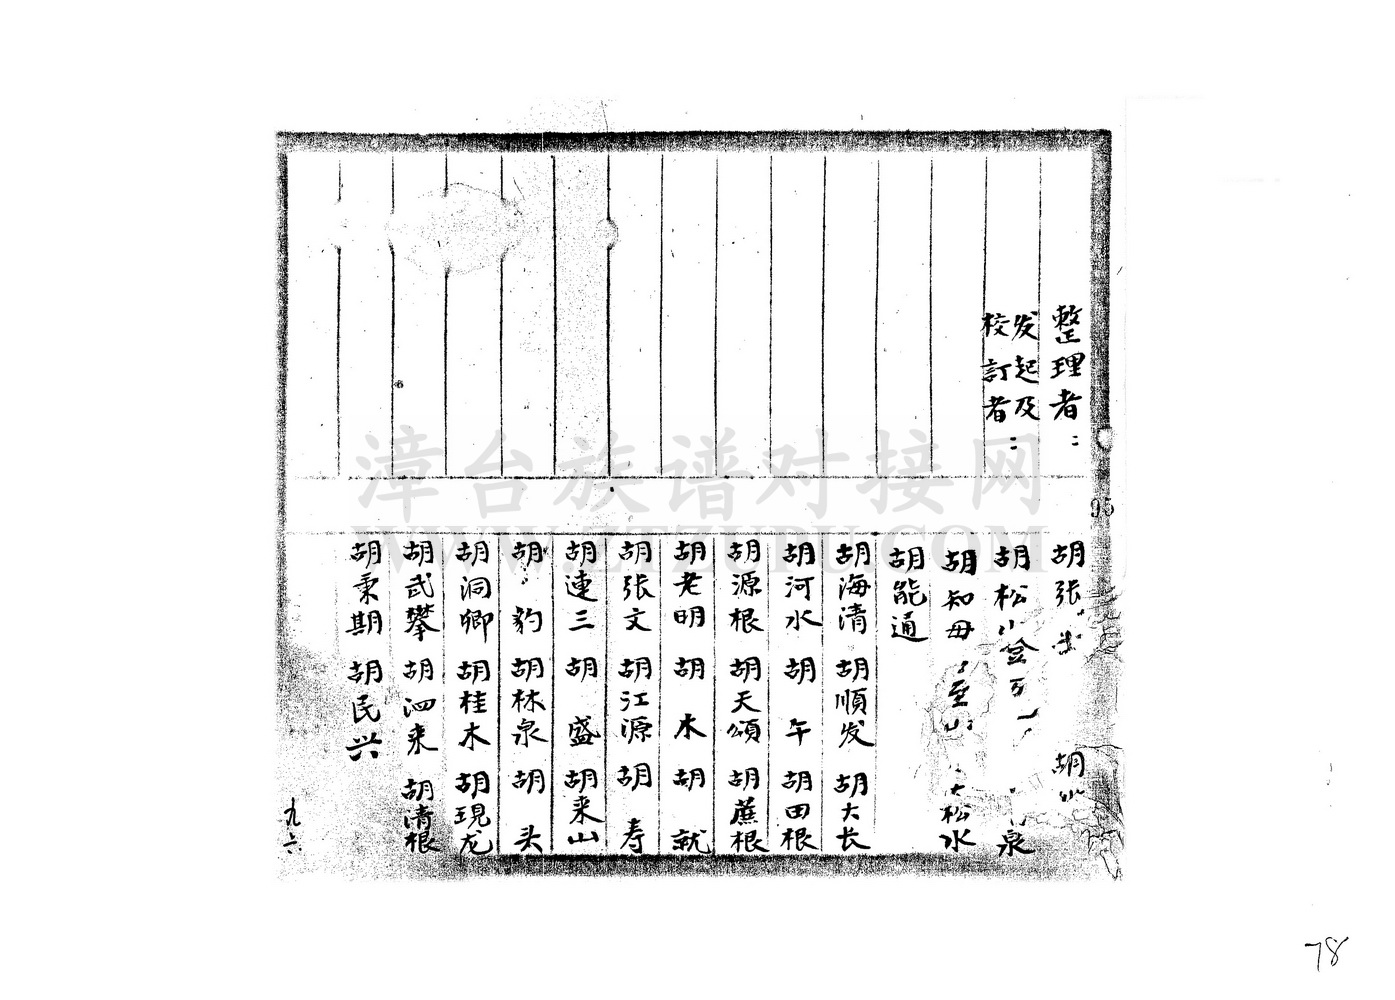 整理者：
胡张
胡
发起及
校訂者：
胡松
泉
胡知母
松水
胡能通
胡海清 胡順发 胡大长
胡河水 胡午 胡田根
胡源根 胡天頌 胡蔗根
胡老明 胡木 胡就
胡张文 胡江源 胡寿
胡連三 胡盛 胡来山
胡豹 胡林泉 胡头
胡洞卿 胡桂木 胡現龙
胡武攀 胡泗来 胡清根
胡秉期 胡民兴
95
九六
78
漳台族谱对接网
WWW.ZTZUPU.COM